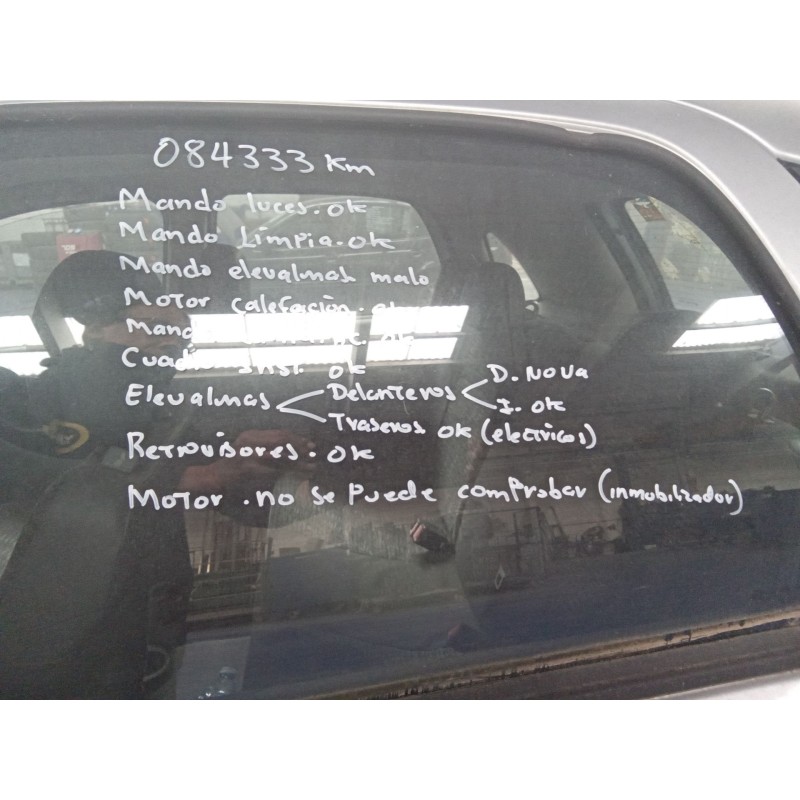 084333 Km
Mando luces. ok
Mando Limpia. ok
Mando elevalunas malo
Motor calefación. ok
Mando ok
Cuadro inst. ok
Elevalunas Delanteros D. NO va
I. ok
Traseros ok (electricos)
Retrovisores. ok
Motor. no se puede comprobar (inmobilizador)